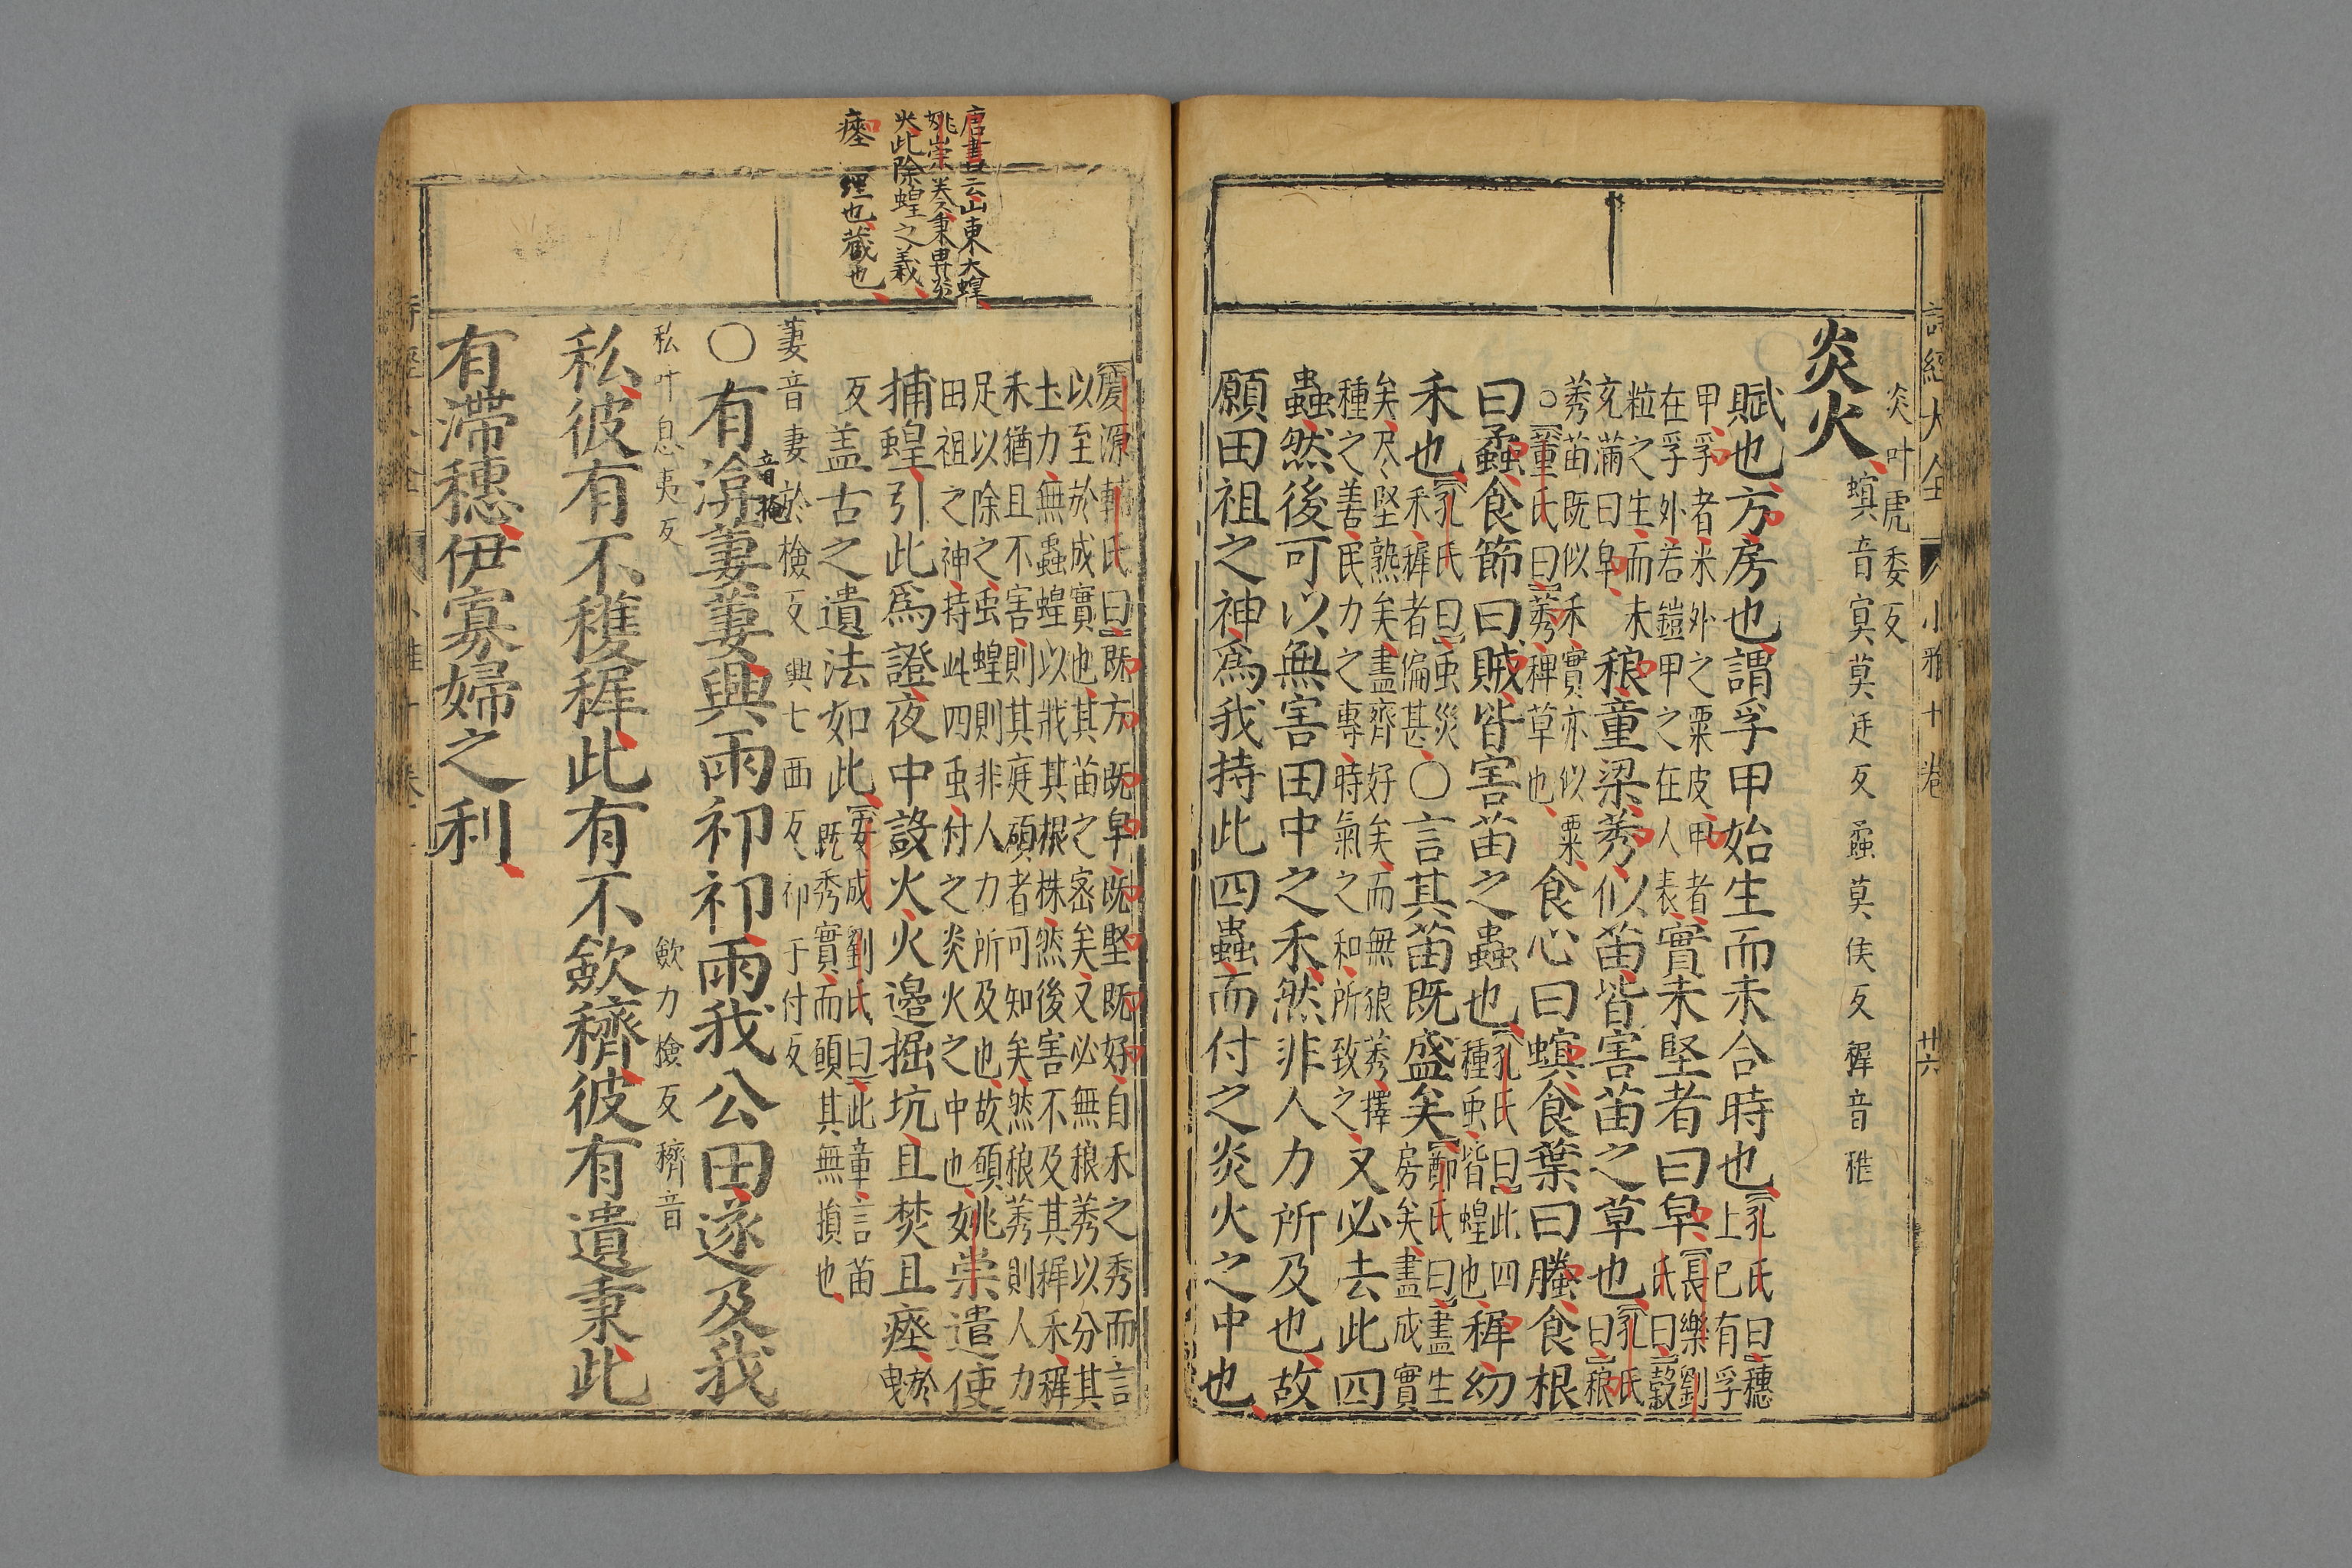 詩經大全 小雅十卷 廿六
炎叶虎委反
炎火
螟音冥莫廷反蟊莫侯反稺音稚
賦也方房也謂孚甲始生而未合時也【孔氏曰穗
上已有孚
甲孚者米外之粟皮甲者
在孚外若鎧甲之在人表
實未堅者曰皁【長樂劉
氏曰穀
粒之生而未
充滿曰皁
稂童梁莠似苗皆害苗之草也【孔氏
曰稂
莠苗既似禾實亦似粟
○董氏曰莠稗草也
食心曰螟食葉曰螣食根
曰蟊食節曰賊皆害苗之蟲也【孔氏曰此四
種虫皆蝗也
稺幼
禾也【孔氏曰虫災
禾稺者偏甚
○言其苗既盛矣【鄭氏曰盡生
房矣盡成實
矣尽堅熟矣盡齊好矣而無狼莠擇
種之善民力之專時氣之和所致之
又必去此四
蟲然後可以無害田中之禾然非人力所及也故
願田祖之神爲我持此四蟲而付之炎火之中也
唐書云山東大蝗
姚崇奏秉畀炎
火此除蝗之義
瘞 埋也藏也
【慶源輔氏曰既方既皁既堅既好自禾之秀而言
以至於成實也其苗之密矣又必無稂莠以分其
土力無蟲蝗以戕其根株然後害不及其稺禾稺
禾猶且不害則其庭碩者可知矣然稂莠則人力
足以除之虫蝗則非人力所及也故願
田祖之神持此四虫付之炎火之中也
姚崇遣使
捕蝗引此爲證夜中設火火邊掘坑且焚且瘞於
曳
反
蓋古之遺法如此【安成劉氏曰此章言苗
既秀實而願其無損也
萋音妻於檢反興七西反祁于付反
○有渰萋萋興雨祁祁雨我公田遂及我
音掩
私叶息夷反 斂力檢反穧音
私彼有不穫稺此有不斂穧彼有遺秉此
有滯穗伊寡婦之利